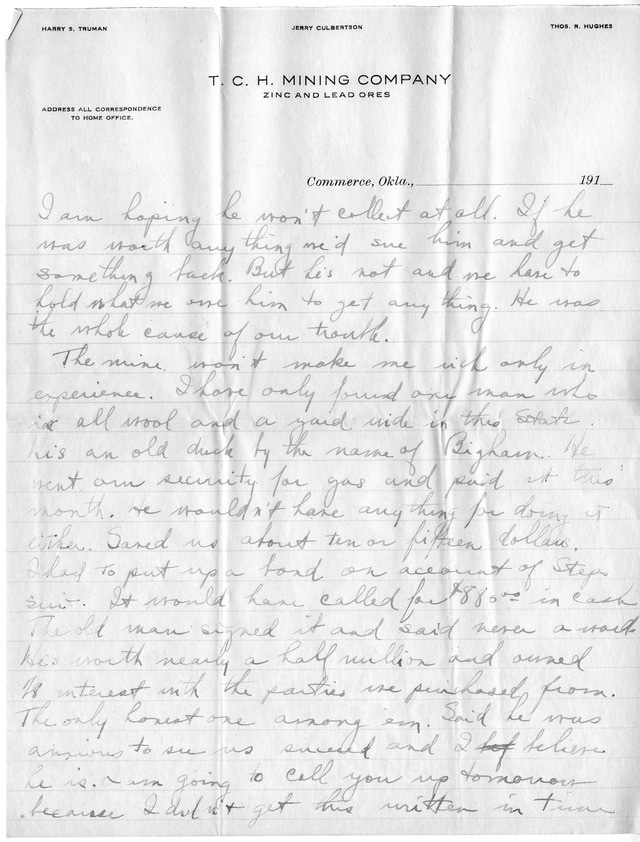 HARRY S. TRUMAN JERRY CULBERTSON THOS. R. HUGHES
T. C. H. MINING COMPANY
ZINC AND LEAD ORES
ADDRESS ALL CORRESPONDENCE
TO HOME OFFICE.
Commerce, Okla., 191
I am hoping he won't collect at all. If he
was worth anything we'd sue him and get
something back. But he's not and we have to
hold what we owe him to get anything. He was
the whole cause of our trouble.
The mine won't make me rich only in
experience. I have only found one man who
is all wool and a yard wide in this state.
His an old duck by the name of Bigham. He
went our security for gas and paid it this
month. He wouldn't have anything for doing it
either. Saved us about ten or fifteen dollars.
I had to put up a bond on account of
suit. It would have called for $880.00 in cash
The old man signed it and said never a word.
He's worth nearly a half million and owned
1/8 interest with the parties we purchased from.
The only honest one among em. Said he was
anxious to see us succeed and I believe
he is. I am going to call you up tomorrow
because I didn't get this written in time